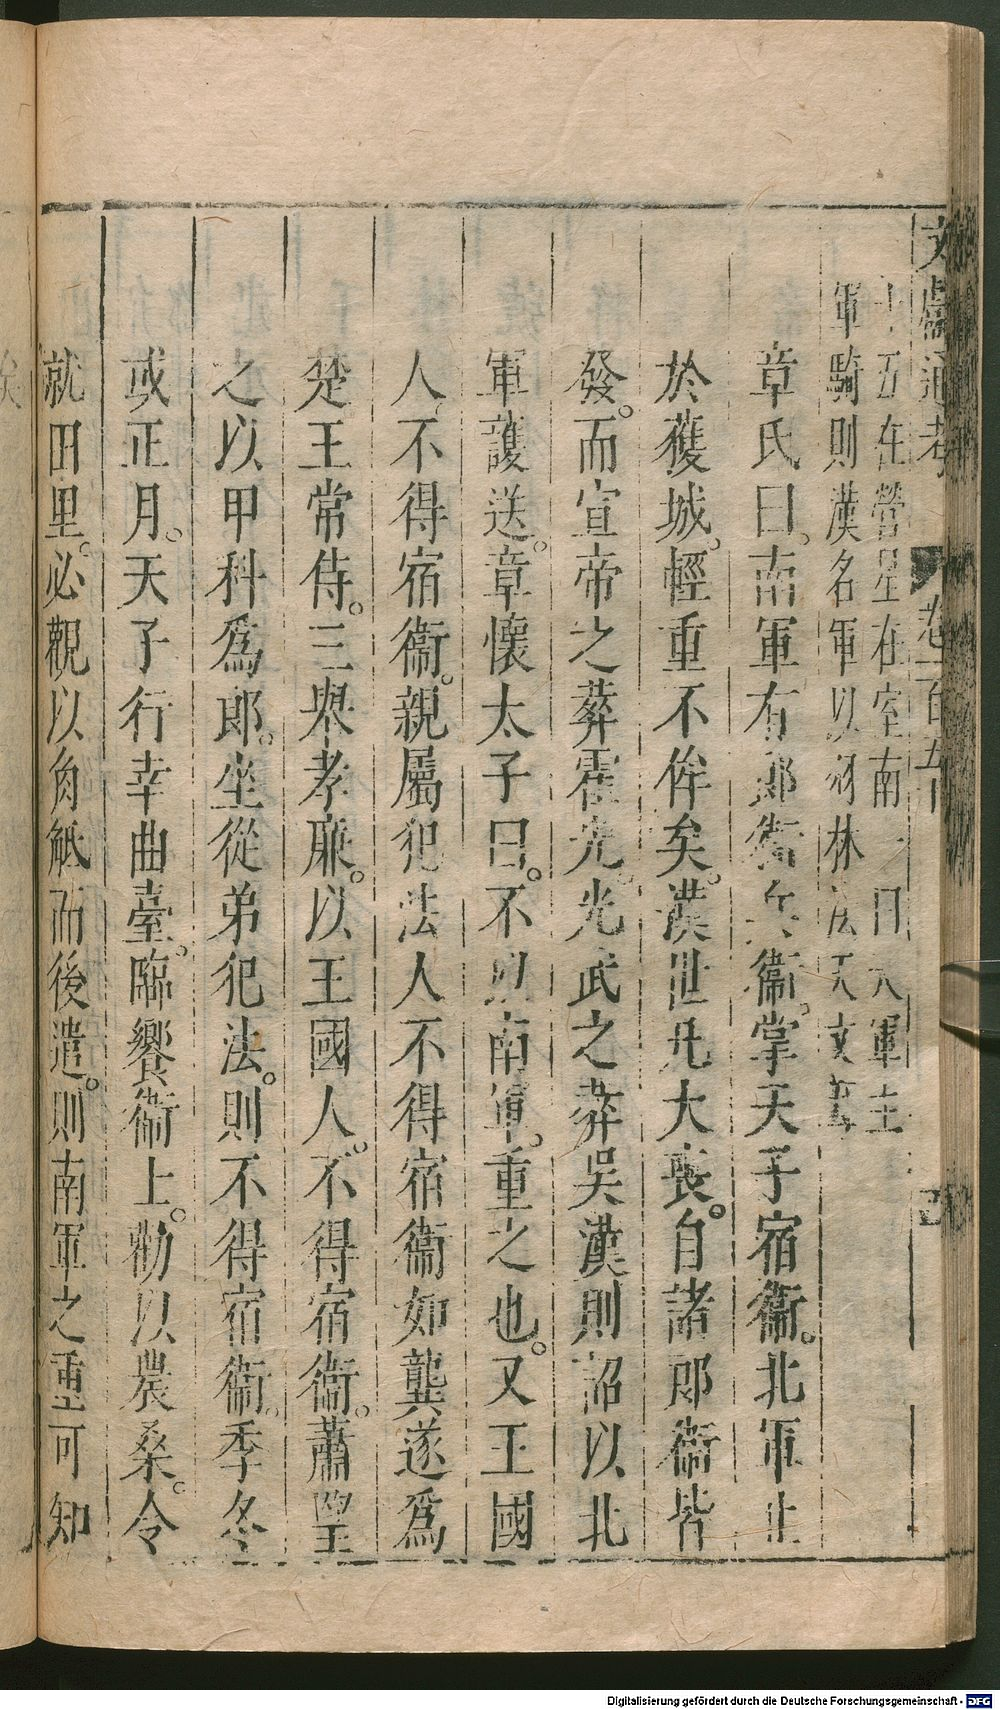 文獻通考 卷一百五十
十五在營星在室南一曰天軍主
軍騎則漢名軍以羽林法天文書
章氏曰。南軍有郎衛兵衛。掌天子宿衛。北軍止
於護城。輕重不侔矣。漢世凡大喪。自諸郎衛皆
發。而宣帝之葬霍光。光武之葬吳漢則詔以北
軍護送。章懷太子曰。不以南軍。重之也。又王國
人不得宿衛。親屬犯法人不得宿衛如龔遂爲
楚王常侍。三舉孝廉。以王國人。不得宿衛。蕭望
之以甲科爲郎。坐從弟犯法。則不得宿衛。季冬
或正月。天子行幸曲臺。臨饗衛上。勑以農桑。令
就田里。必觀以角觝而後遣。則南軍之重可知
Digitalisierung gefördert durch die Deutsche Forschungsgemeinschaft - DFG